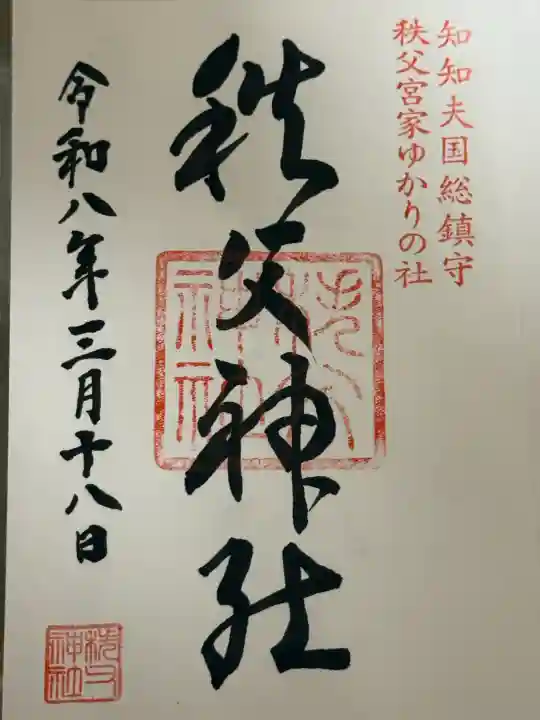 知知夫国総鎮守
秩父宮家ゆかりの社
秩父神社
秩父神社
令和八年三月十八日
秩父神社